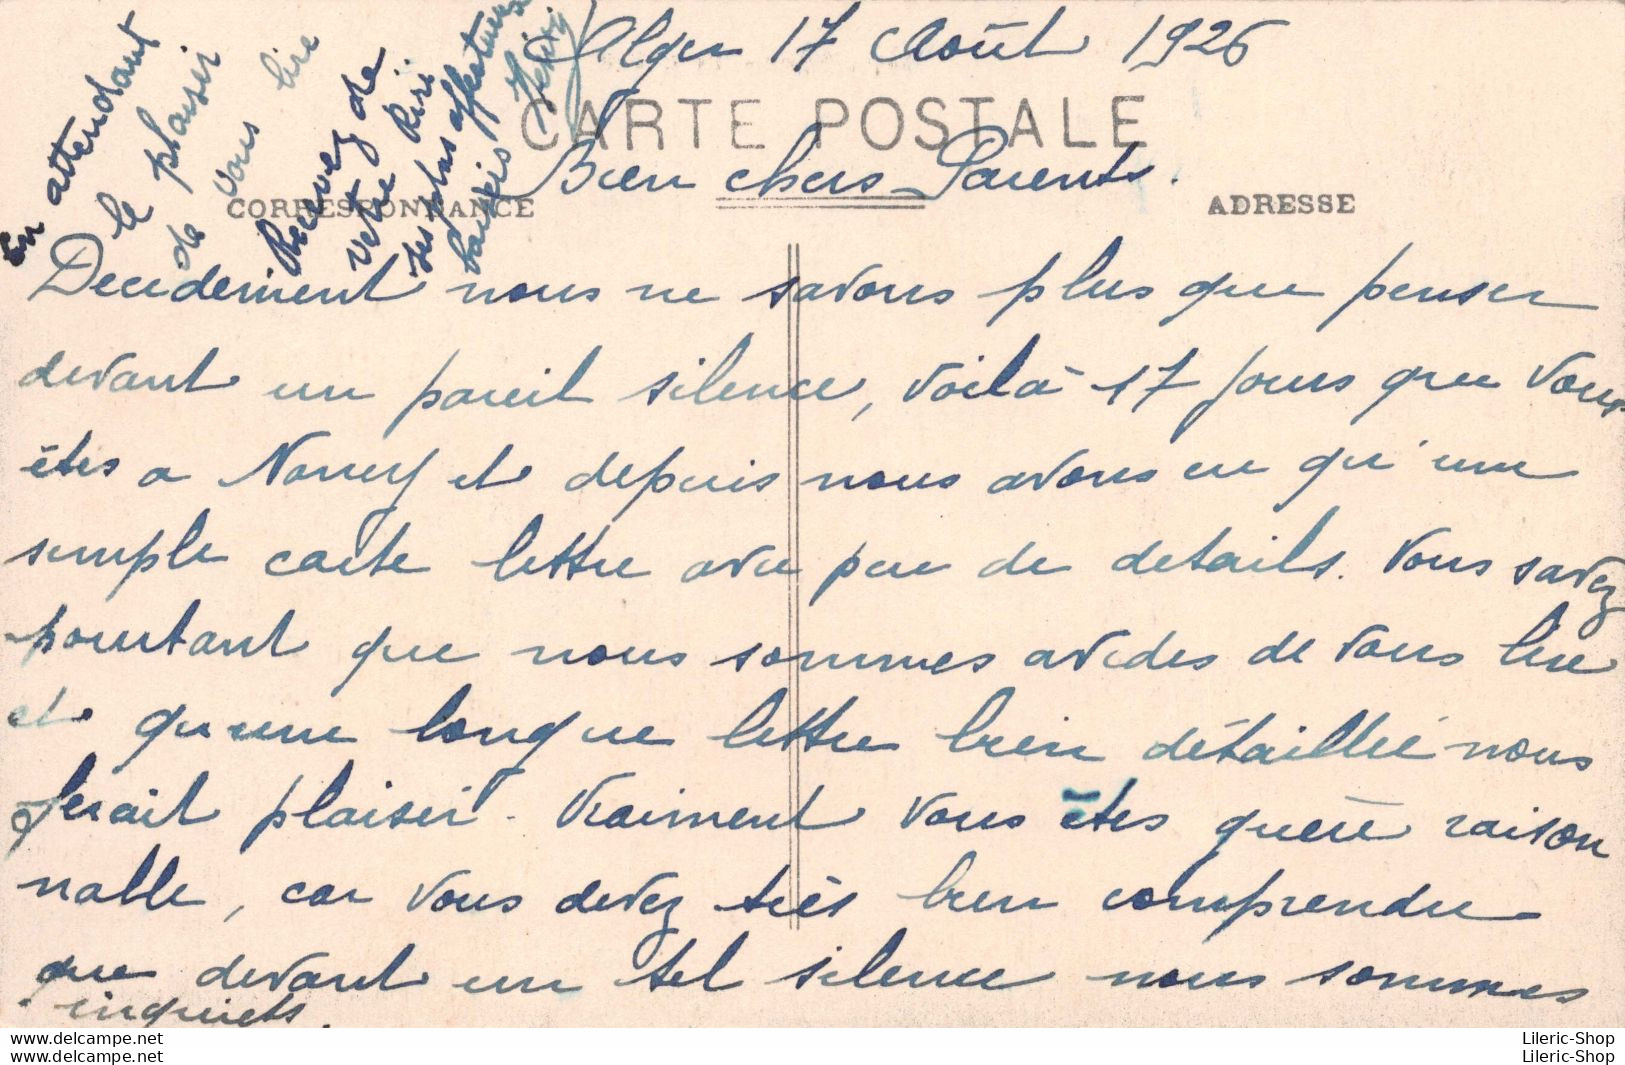 Alger 17 Août 1926
CARTE POSTALE
Bien chers Parents.
CORRESPONDANCE
ADRESSE
Decidement nous ne savons plus que penser
devant un pareil silence, voilà 17 jours que vous
êtes a Nancy et depuis nous avons eu qu'une
simple carte lettre avec peu de details. Vous savez
pourtant que nous sommes avides de vous lire
et qu'une longue lettre bien détaillée nous
ferait plaisir. Vraiment vous êtes guère raison
nable, car vous devez très bien comprendre
que devant un tel silence nous sommes
inquiets.
En attendant
le plaisir
de vous lire
Recevez de
votre Riri
ses plus affectueux
baisers
www.delcampe.net
www.delcampe.net
Lileric-Shop
Lileric-Shop